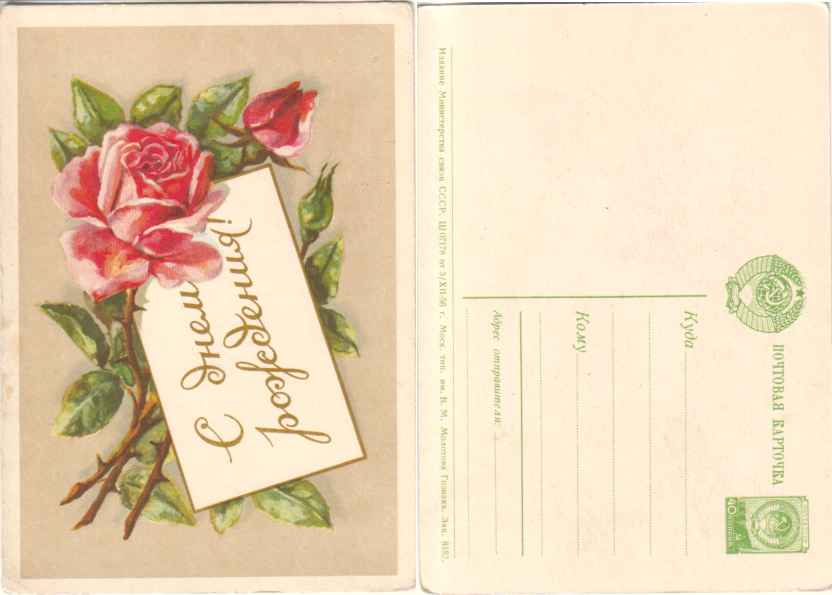 С днем
рождения!
ПОЧТОВАЯ КАРТОЧКА
Куда
Кому
Адрес отправителя:
Издание Министерства связи СССР. Ш 07178 от 3/XII-56 г. Моск. тип. им. В. М. Молотова Гознака. Зак. 8182.
40